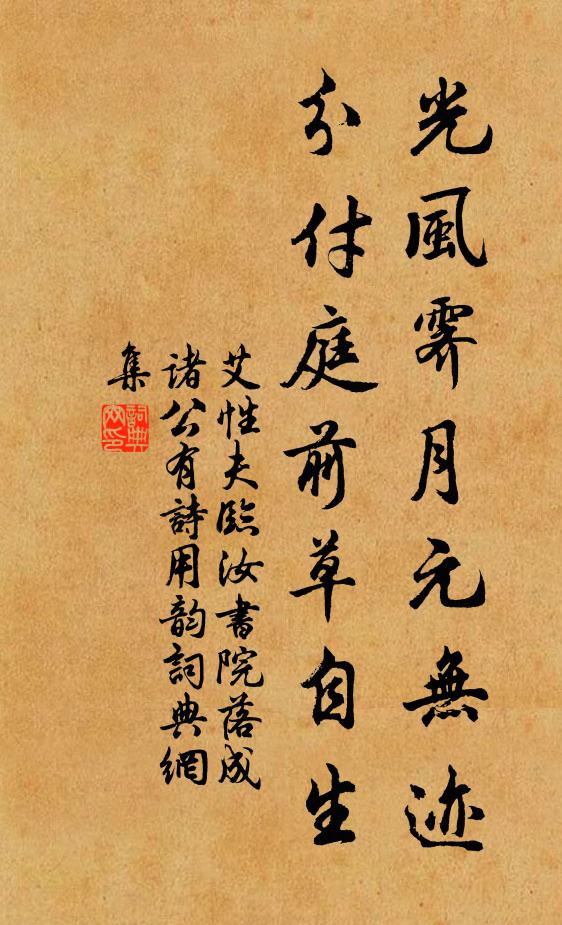 光風霽月元無迹
分付庭前草自生
艾性夫臨汝書院落成
諸公有詩用韵詞典網
集
詞典
网印